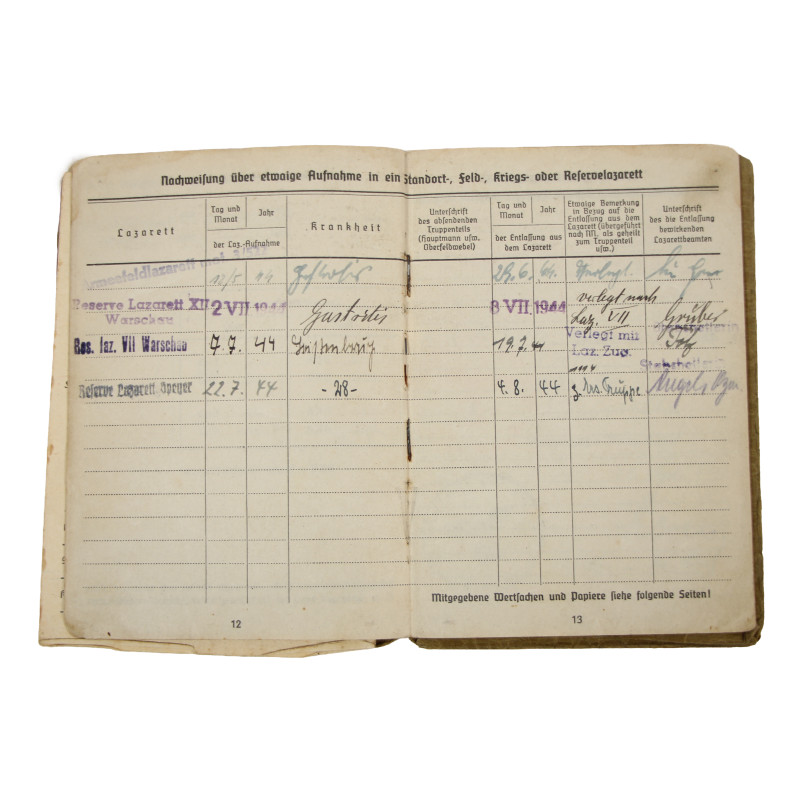 Nachweisung über etwaige Aufnahme in ein Standort-, Feld-, Kriegs- oder Reservelazarett
Lazarett
Tag und Monat
Jahr
der Laz.-Aufnahme
Krankheit
Unterschrift
des absendenden
Truppenteils
(Hauptmann usw.
Oberfeldwebel)
Tag und Monat
Jahr
der Entlassung aus
dem Lazarett
Etwaige Bemerkung
in Bezug auf die
Entlassung aus dem
Lazarett (übergeführt
nach NN, als geheilt
zum Truppenteil
usw.)
Unterschrift
des die Entlassung
bewirkenden
Lazarettbeamten
Armeefeldlazarett
44
29.6. 44.
Verlegt.
Reserve Lazarett XII
Warschau
2 VII 1944
Gastritis
8 VII. 1944
verlegt nach
Laz. VII
Grüber
Res. laz. VII Warschau
7.7. 44
Leistenbruch
19.7. 44
Verlegt mit
Laz. Zug.
Reserve Lazarett Speyer
22.7. 44
-28-
4.8. 44
z. Ers. Truppe
Mitgegebene Wertsachen und Papiere siehe folgende Seiten!
12
13